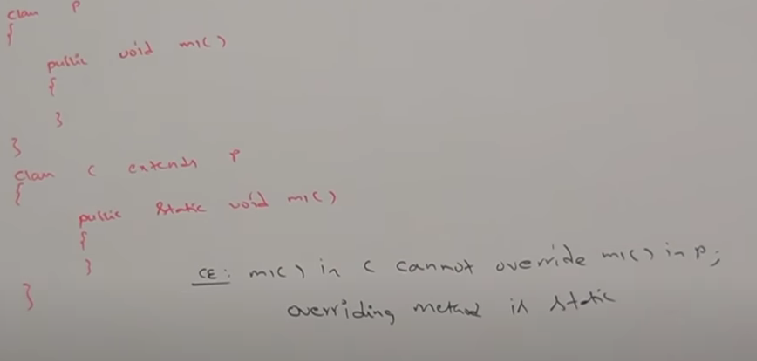 class P
{
public void m1()
{
}
}
class C extends P
{
public static void m1()
{
}
}
CE: m1() in C cannot override m1() in P;
overriding method is static